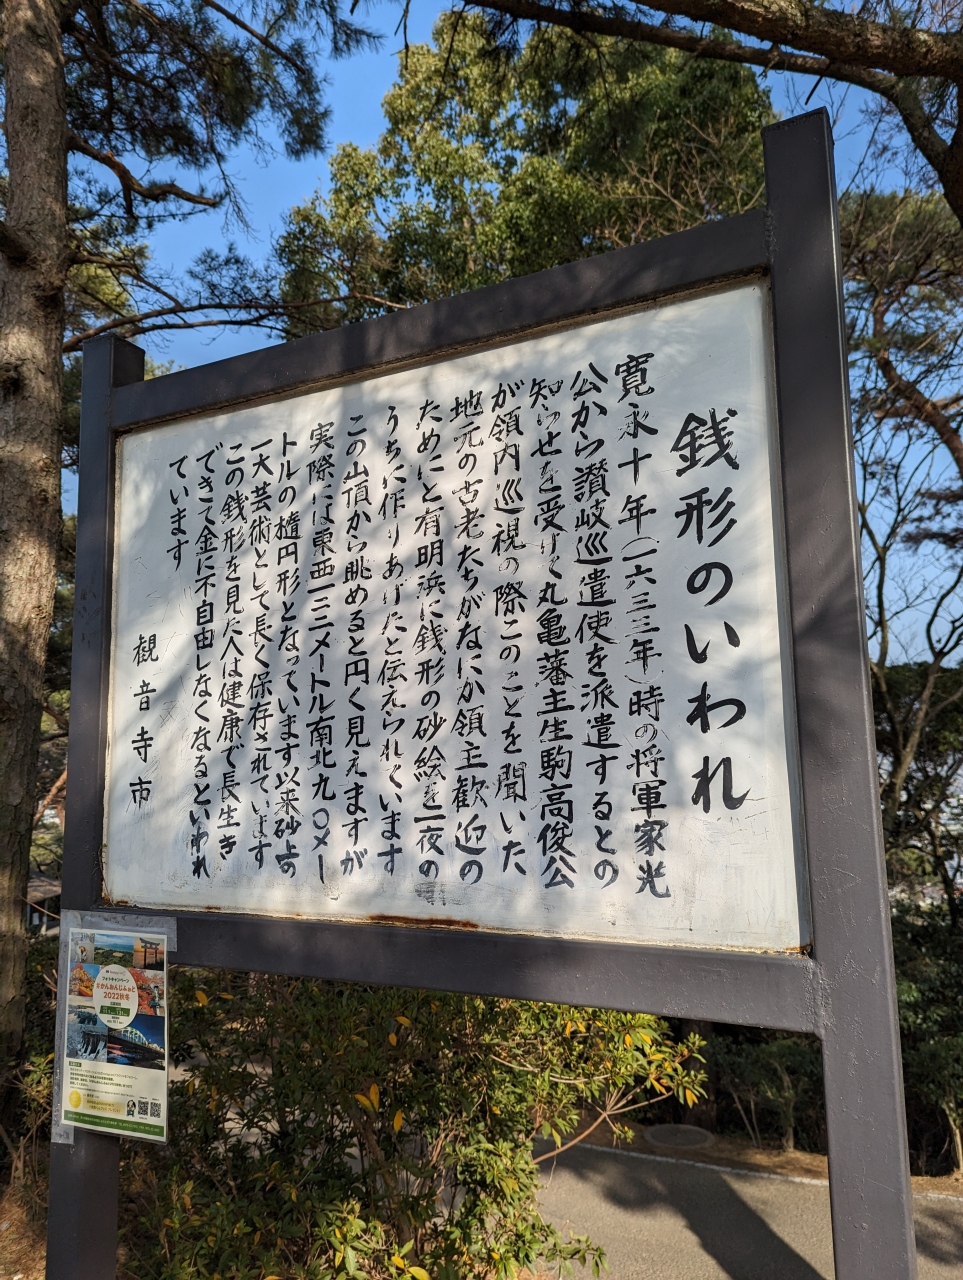 銭形のいわれ
寛永十年(一六三三年)時の将軍家光
公から讃岐巡遣使を派遣するとの
知らせを受けて丸亀藩主生駒高俊公
が領内巡視の際このことを聞いた
地元の古老たちがなにか領主歓迎の
ためにと有明浜に銭形の砂絵を一夜の
うちに作りあげたと伝えられています
この山頂から眺めると円く見えますが
実際には東西一二二メートル南北九〇メー
トルの楕円形となっています以来砂上の
一大芸術として長く保存されています
この銭形を見た人は健康で長生き
できて金に不自由しなくなるといわれ
ています
観音寺市
フォトキャンペーン
#かんおんじふぉと
2022秋冬